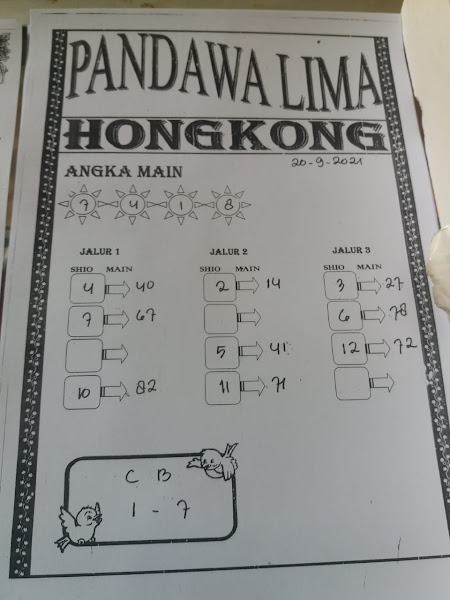 PANDAWA LIMA
HONGKONG
20-9-2021
ANGKA MAIN
7 4 1 8
JALUR 1 JALUR 2 JALUR 3
SHIO MAIN SHIO MAIN SHIO MAIN
4 40 2 14 3 27
7 67 6 78
5 41 12 72
10 82 11 71
C B
1 - 7